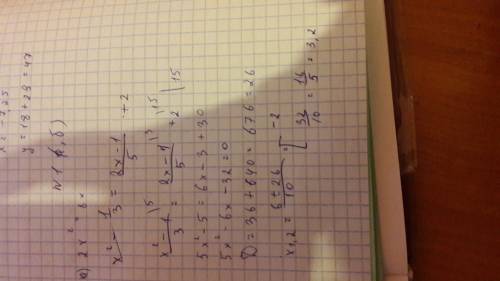 y = 18 + 29 = 47
N 1 (а, б)
а) 2x² = 6x
x² - 1/3 = (2x - 1)/5 + 2
(x² - 1)/3 \5 = (2x - 1)/5 \3 + 2 \15 | 15
5x² - 5 = 6x - 3 + 30
5x² - 6x - 32 = 0
D = 36 + 640 = 676 = 26
x1,2 = (6 ± 26)/10 = [ -2
32/10 = 16/5 = 3,2